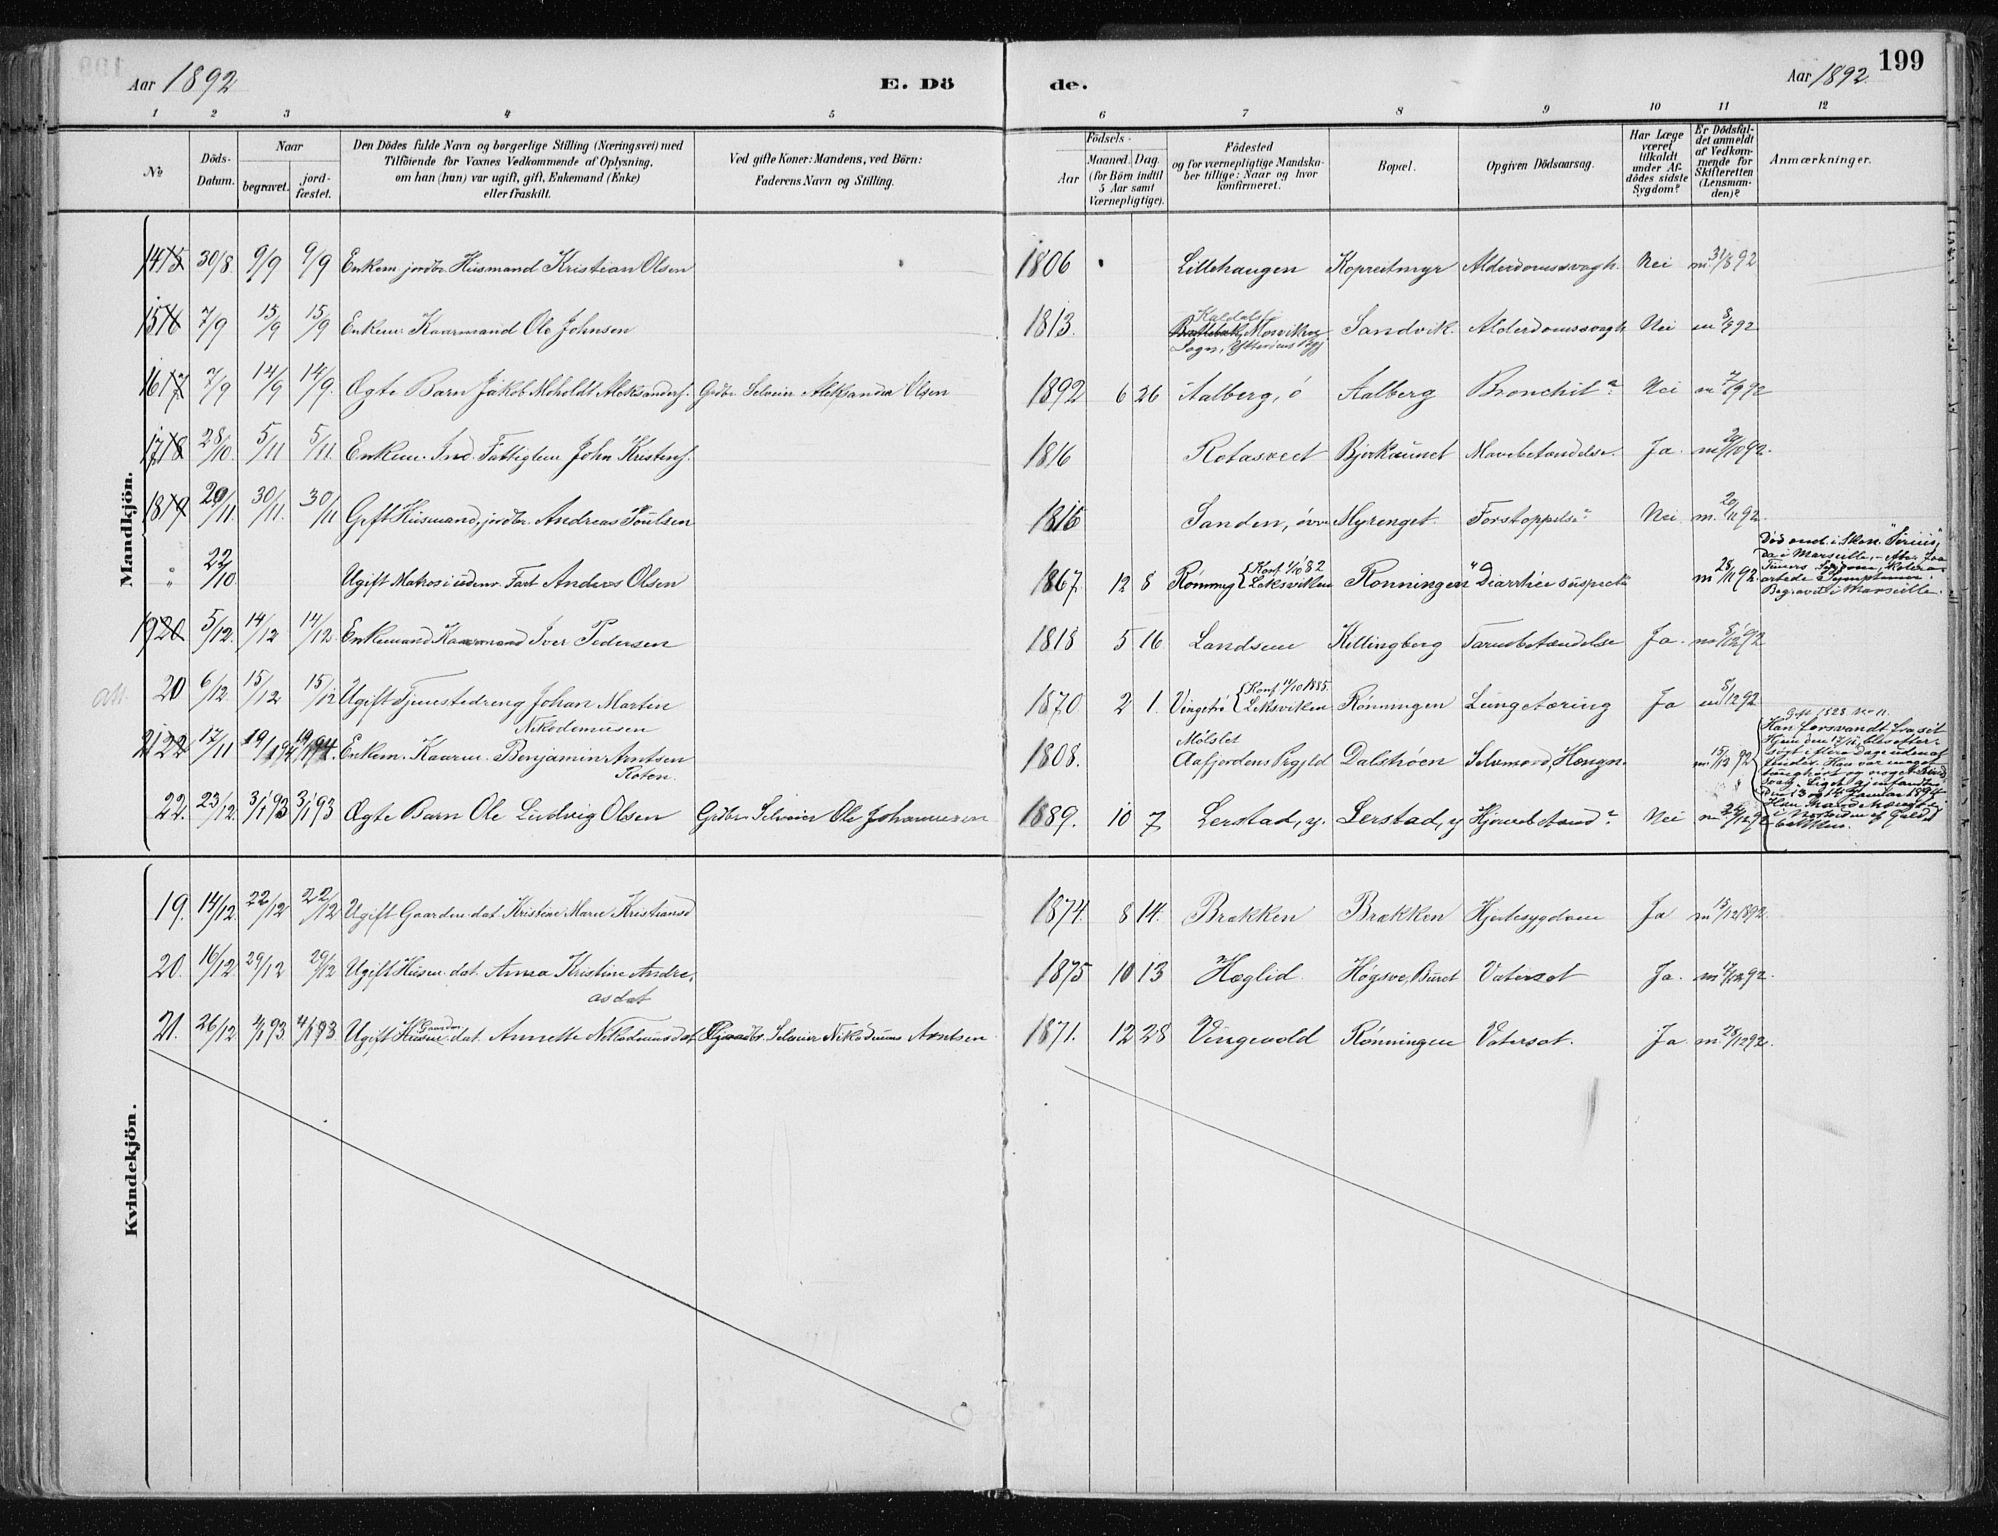 Aar 1892
E. Dö
de.
Aar 1892.
199
1 2 3 4 5 6 7 8 9 10 11 12
№
Döds-Datum.
Naar
begravet.
jord-fæstet.
Den Dödes fulde Navn og borgerlige Stilling (Næringsvei) med
Tilföiende for Voxnes Vedkommende af Oplysning,
om han (hun) var ugift, gift, Enkemand (Enke)
eller fraskilt.
Ved gifte Koner: Mandens, ved Börn:
Faderens Navn og Stilling.
Födsels-
Aar
Maaned. Dag.
(for Börn indtil
5 Aar samt
Værnepligtige).
Födested
og for værnepligtige Mandska-
ber tillige: Naar og hvor
konfirmeret.
Bopæl.
Opgiven Dödsaarsag.
Har Læge
været
tilkaldt
under Af-
dödes sidste
Sygdom?
Er Dödsfal-
det anmeldt
af Vedkom-
mende for
Skifteretten
(Lensman-
den)?
Anmærkninger.
Mandkjön.
14 15 30/8 9/9 9/9 Enkem. jordbr. Husmand Kristian Olsen 1806 Lillehaugen Kopreitmyr Alderdomssvagh. Nei m. 31/8 92
15 16 7/9 15/9 15/9 Enkem. Kaarmand Ole Johnsen 1813. Kaldalslo Mosviken Sogn, Ytterøens Pgj Sandvik Alderdomssvagh. Nei m 8/9 92
16 17 7/9 14/9 14/9. Ægte Barn Jakob Moholdt Aleksanders. Grdbr. Selveier Aleksander Olsen 1892 6 26 Aalberg, ö Aalberg Bronchit Nei m 7/9 92
17 18 28/10. 5/11 5/11. Enkem. Ind. Fattiglem John Kristens. 1816 Rotasveet Bjørkaunet Mavebetændelse. Ja. m 92.
18 19 20/11. 30/11. 30/11 Gift Husmand, jordbr. Andreas Poulsen 1816 Sanden, övre Myrenget. Forstoppelse Nei m. 20/11 92.
" 22/10. Ugift Matros i udenr. Fart Anders Olsen 1867. 12 8 Rønning {Konf. 1/10 82 Leksviken Rønningen Diarrhée suspecte m 28/11 92.
Død omb. i Skon. "Sirius", da i Marseille.
Begravet i Marseille.
19 20 5/12. 14/12 14/12. Enkemand Kaarmand Iver Pedersen 1818 5 16 Landsem Killingberg Tarmbetændelse Ja. m 8/12 92
20 6/12. 15/12 15/12 Ugift Tjenestedreng Johan Martin
Nikodemusen 1870 2 1. Vingetrø {Konf. 11/10 1885. Leksviken Rønningen Lungetæring Ja m 8/12 92
21 22 17/11 19/1 94 19/1 94. Enkem. Kaarm. Benjamin Arntsen
Roten. 1808. Mølslet Aafjordens Prgjeld Dalstrøen Selvmord, Hængn. m. 15/12 92
Gift 1828 No 11.
Han forsvandt fra sit
Hjem den 17/11, blev efter-
søgt i flere Dage uden at
findes. Han var meget
tunghørt og noget sind
svag. Liget gjenfandtes
den 13 og 14 Januar 1894
22. 23/12. 3/1 93 3/1 93 Ægte Barn Ole Ludvig Olsen Grdbr. Selveier Ole Johannesen 1889. 10 7 Lerstad, y. Lerstad, y Hjernebetænd. Nei m 24/12 92
Kvindekjön.
19. 14/12. 22/12 22/12 Ugift Gaardm. dat. Kristine Marie Kristiansd 1874. 8 14. Brækken Brækken Hjertesygdom Ja m 15/12 1892.
20. 16/12 29/12 29/12 Ugift Husm. dat. Anna Kristine Andre-
asdat 1875 10 13 Hæglid. Høgsve, Buret Vatersot Ja. m 17/12 92.
21. 26/12. 4/1 93 4/1 93. Ugift Gaardm. Husm. dat. Annette Nikodemusdat. Gaardbr. Selveier Nikodemus Arntsen 1871. 12 28 Vingevold Rønningen Vatersot. Ja. m 28/12 92.